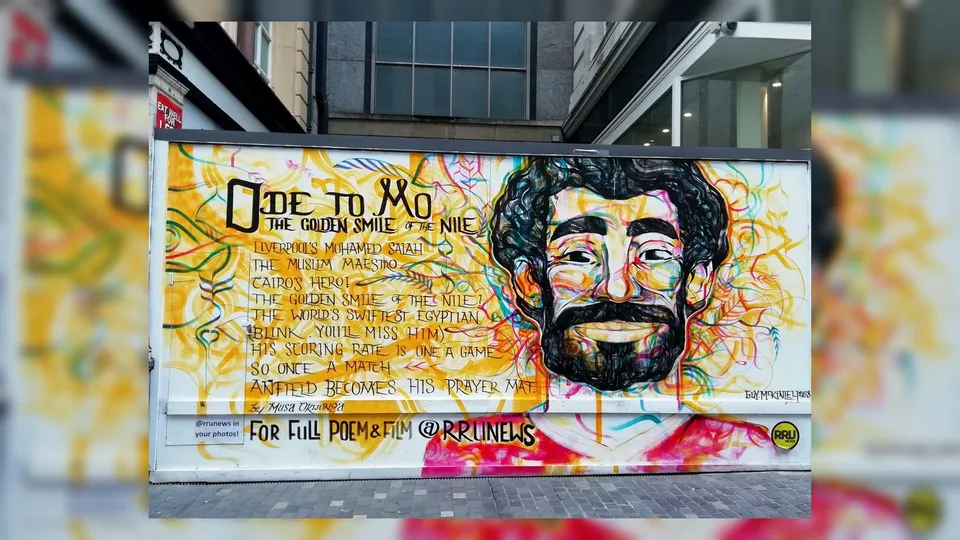 EAT WELL
FOR
ODE TO MO
THE GOLDEN SMILE OF THE NILE
LIVERPOOL'S MOHAMED SALAH
THE MUSLIM MAESTRO
CAIRO'S HERO!
THE GOLDEN SMILE OF THE NILE!
THE WORLD'S SWIFTEST EGYPTIAN
(BLINK YOU'LL MISS HIM)
HIS SCORING RATE IS ONE A GAME
SO ONCE A MATCH
ANFIELD BECOMES HIS PRAYER MAT
by MUSA OKWONGA
@rrunews in
your photos!
FOR FULL POEM & FILM @RRUNEWS
GUY MCKINLEY 2018
RRU
NEWS